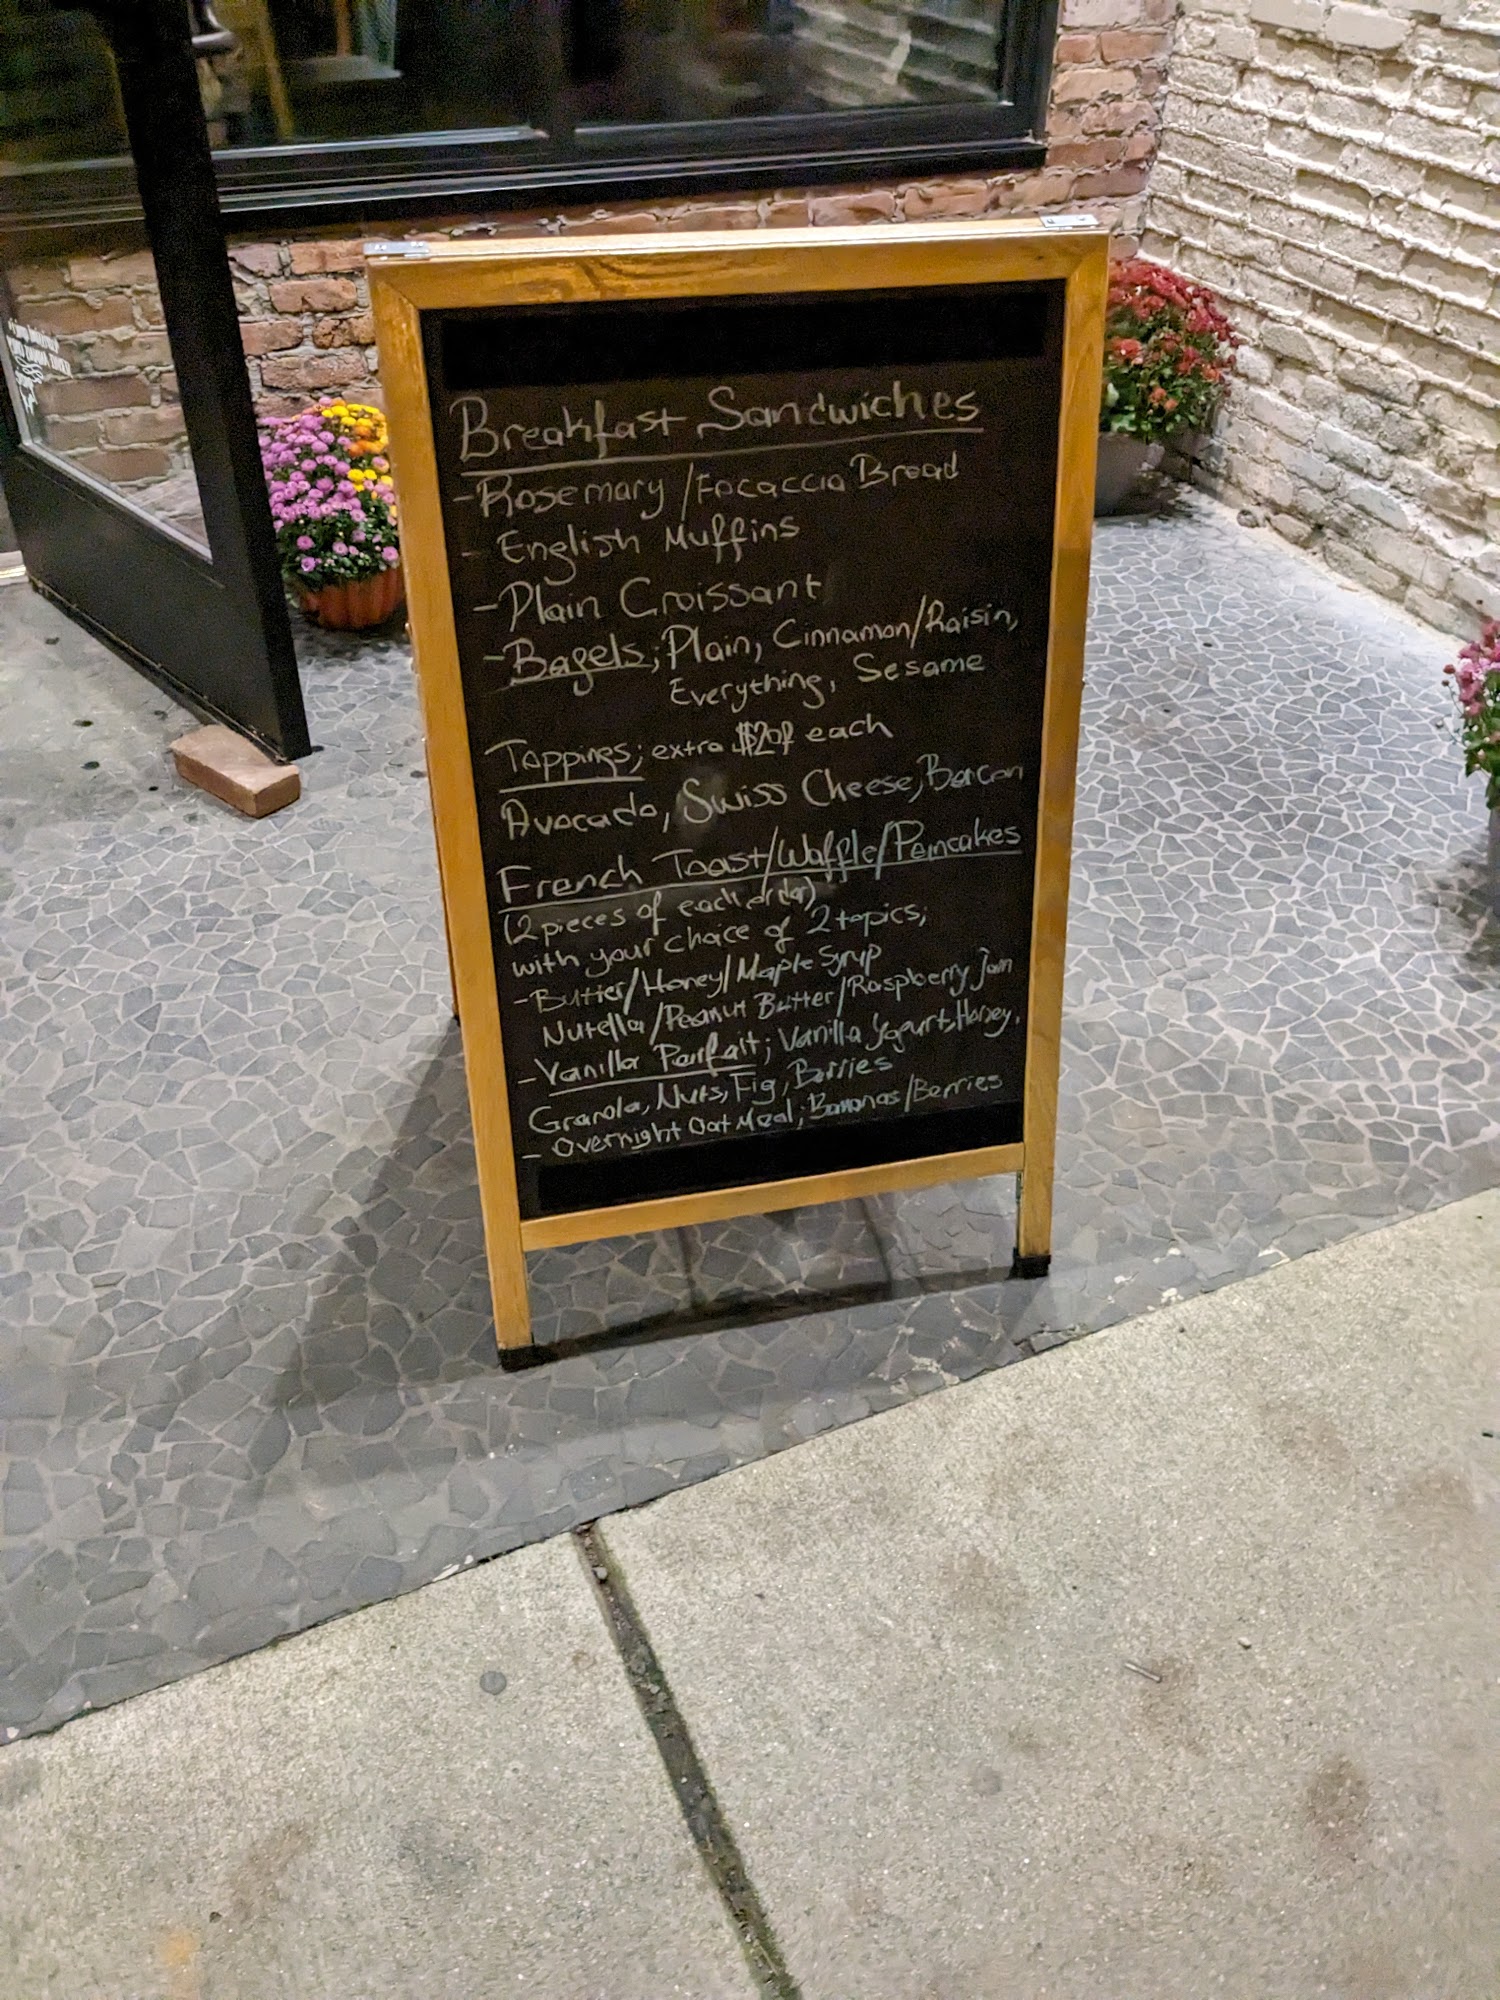 Breakfast Sandwiches
-Rosemary/Focaccia Bread
- English Muffins
-Plain Croissant
-Bagels; Plain, Cinnamon/Raisin,
Everything, Sesame
Toppings; extra each
Avocado, Swiss Cheese, Bacon
French Toast/Waffle/Pancakes
(2 pieces of each order)
with your choice of 2 topics;
-Butter/Honey/Maple Syrup
Nutella/Peanut Butter/Raspberry Jam
-Vanilla Parfait; Vanilla Yogurt, Honey,
Granola, Nuts, Fig, Berries
- Overnight Oat Meal; Bananas/Berries